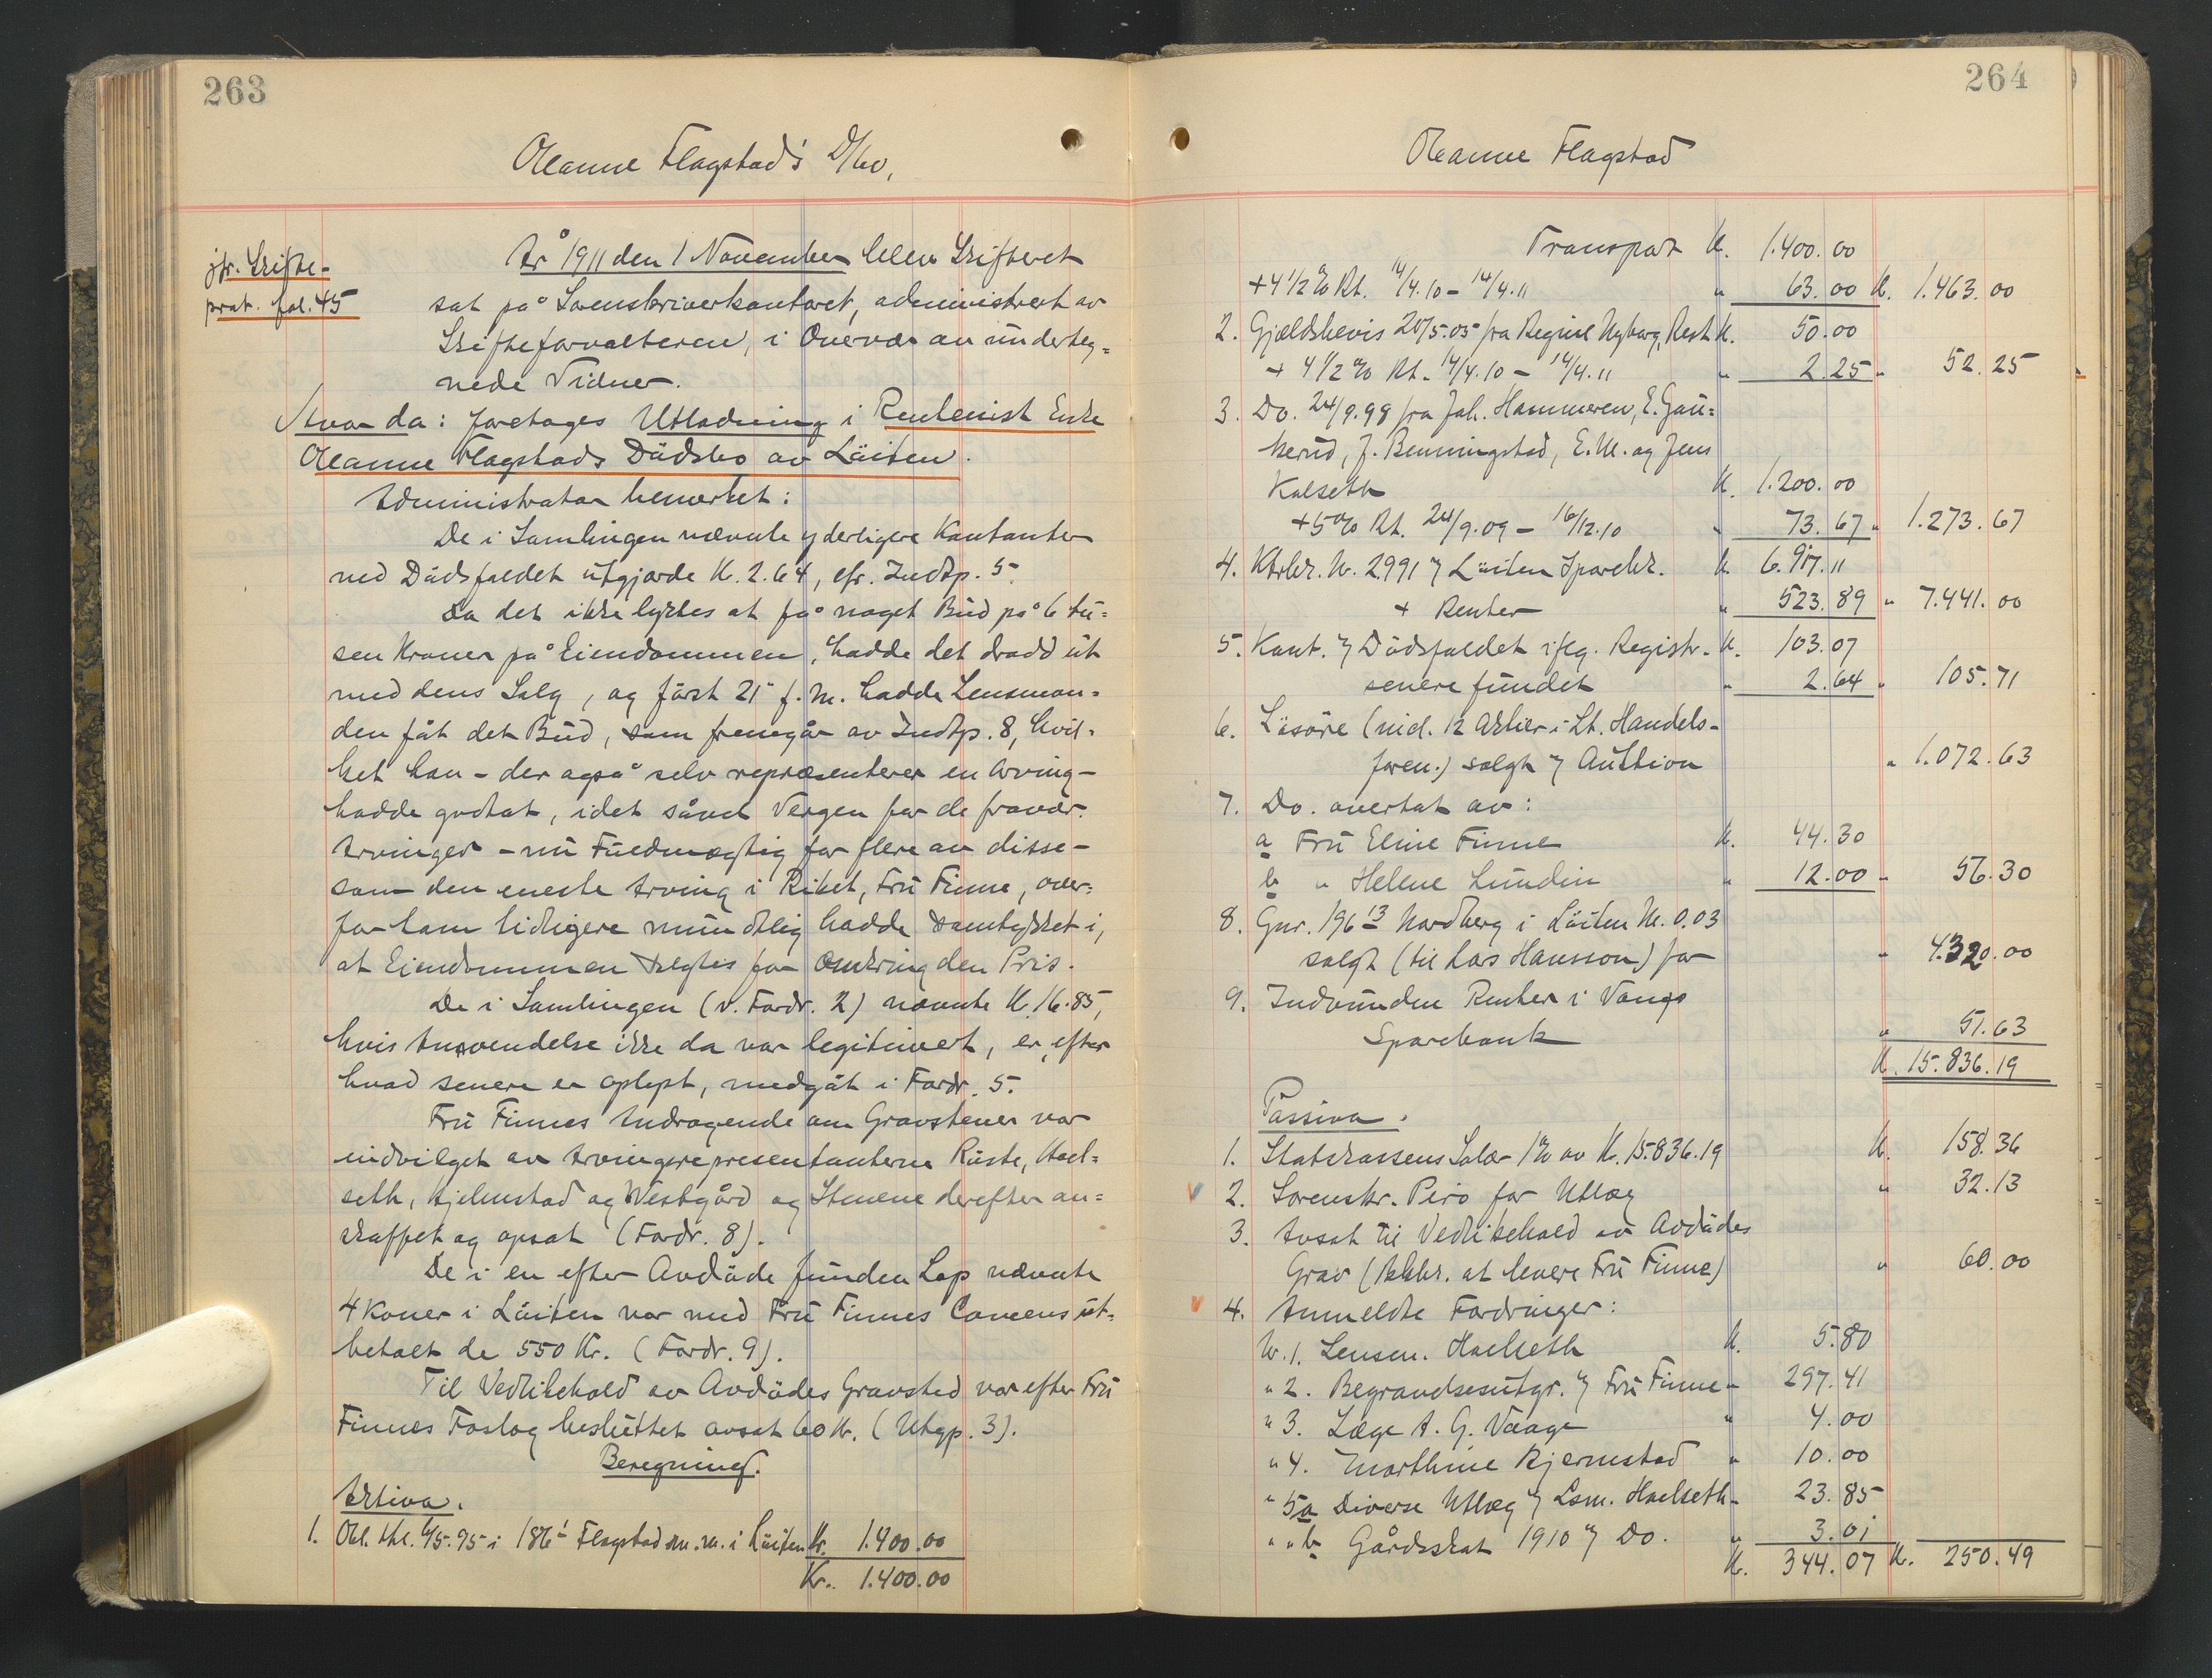 263
Oleanne Flagstad's D/bo,
jfr. Skifte-
prot. fol. 45
År 1911 den 1 November blev Skifteret
sat på Sorenskriverkontoret, administrert av
Skifteforvalteren, i Overvær av underteg=
nede Vidner.
Hvor da: foretages Utlodning i Rentenist Enke
Oleanne Flagstads Dödsbo av Löiten.
Administrator bemerket:
De i Samlingen nævnte yderligere Kontanter
ved Dödsfaldet utgjorde Kr. 2.64, cfr. Indtp. 5.
Da det ikke lyktes at få noget Bud på 6 tu=
sen Kroner på Eiendommen, hadde det dradd ut
med dens Salg, og först 21 f. M. hadde Lensman=
den fåt det Bud, som fremgår av Indtp. 8, hvil=
ket han - der også selv repræsenterer en Arving -
hadde godtat, idet såvel Vergen for de fravær.
Arvinger - nu Fuldmægtig for flere av disse -
som den eneste Arving i Riket, Fru Finne, over=
for ham tidligere mundtlig hadde samtykket i,
at Eiendommen solgtes for omkring den Pris.
De i Samlingen (v. Fordr. 2) nævnte Kr. 16.85,
hvis Anvendelse ikke da var legitimert, er, efter
hvad senere er oplyst, medgåt i Fordr. 5.
Fru Finnes Andragende om Gravstener var
indvilget av Arvingerepresentanterne Ruste, Hoel=
seth, Hjelmstad og Westgård og Stenene derefter an=
skaffet og opsat (Fordr. 8).
De i en efter Avdöde funden Lap nævnte
4 Koner i Löiten var med Fru Finnes Consens ut=
betalt de 550 Kr. (Fordr. 9).
Til Vedlikehold av Avdödes Gravsted var efter Fru
Finnes Forslag besluttet avsat 60 Kr. (Utgp. 3).
Beregning.
Aktiva.
1. Obl. thl. 4/5.95 i 186¹ Flagstad m. m. i Löiten Kr. 1.400.00
Kr. 1.400.00
264
Oleanne Flagstad
Transport Kr. 1.400.00
+ 4 1/2 % Rt. 14/4.10 - 14/4.11 " 63.00 Kr. 1.463.00
2. Gjældsbevis 20/5.05 fra Regine Nyborg, Rest Kr. 50.00
+ 4 1/2 % Rt. 14/4.10 - 14/4.11 " 2.25 " 52.25
3. Do. 24/9.98 fra Joh. Hammeren, E. Gau=
kerud, J. Benningstad, E. M. og Jens
Kolseth Kr. 1.200.00
+ 5 % Rt. 24/9.09 - 16/12.10 " 73.67 " 1.273.67
4. Ktrbk. Nr. 2991 i/ Löiten Sparebk. Kr. 6.917.11
+ Renter " 523.89 " 7.441.00
5. Kont. v/ Dödsfaldet iflg. Registr. Kr. 103.07
senere fundet " 2.64 " 105.71
6. Lösöre (incl. 12 Aktier i Lt. Handels-
foren.) solgt v/ Auktion " 1.072.63
7. Do. overtat av:
a Fru Eline Finne Kr. 44.30
b " Helene Lundin " 12.00 " 56.30
8. Gnr. 196 13 Nordberg i Löiten M. 0.03
solgt (til Lars Hansson) for " 4.320.00
9. Indvunden Renter i Vangs
Sparebank " 51.63
Kr. 15.836.19
Passiva.
1. Statskassens Salær 1 % av Kr. 15.836.19 Kr. 158.36
2. Sorenskr. Piro for Utlæg " 32.13
3. Avsat til Vedlikehold av Avdödes
Grav (Bkbk. at levere Fru Finne) " 60.00
4. Anmeldte Fordringer:
Nr. 1. Lensm. Hoelseth Kr. 5.80
" 2. Begravelsesutgr. v/ Fru Finne - 297.41
" 3. Læge A. G. Vaage " 4.00
" 4. Marthine Bjernstad " 10.00
" 5a Diverse Utlæg v/ Lsm. Hoelseth - 23.85
" " b Gårdsskat 1910 v/ Do. " 3.01
Kr. 344.07 Kr. 250.49